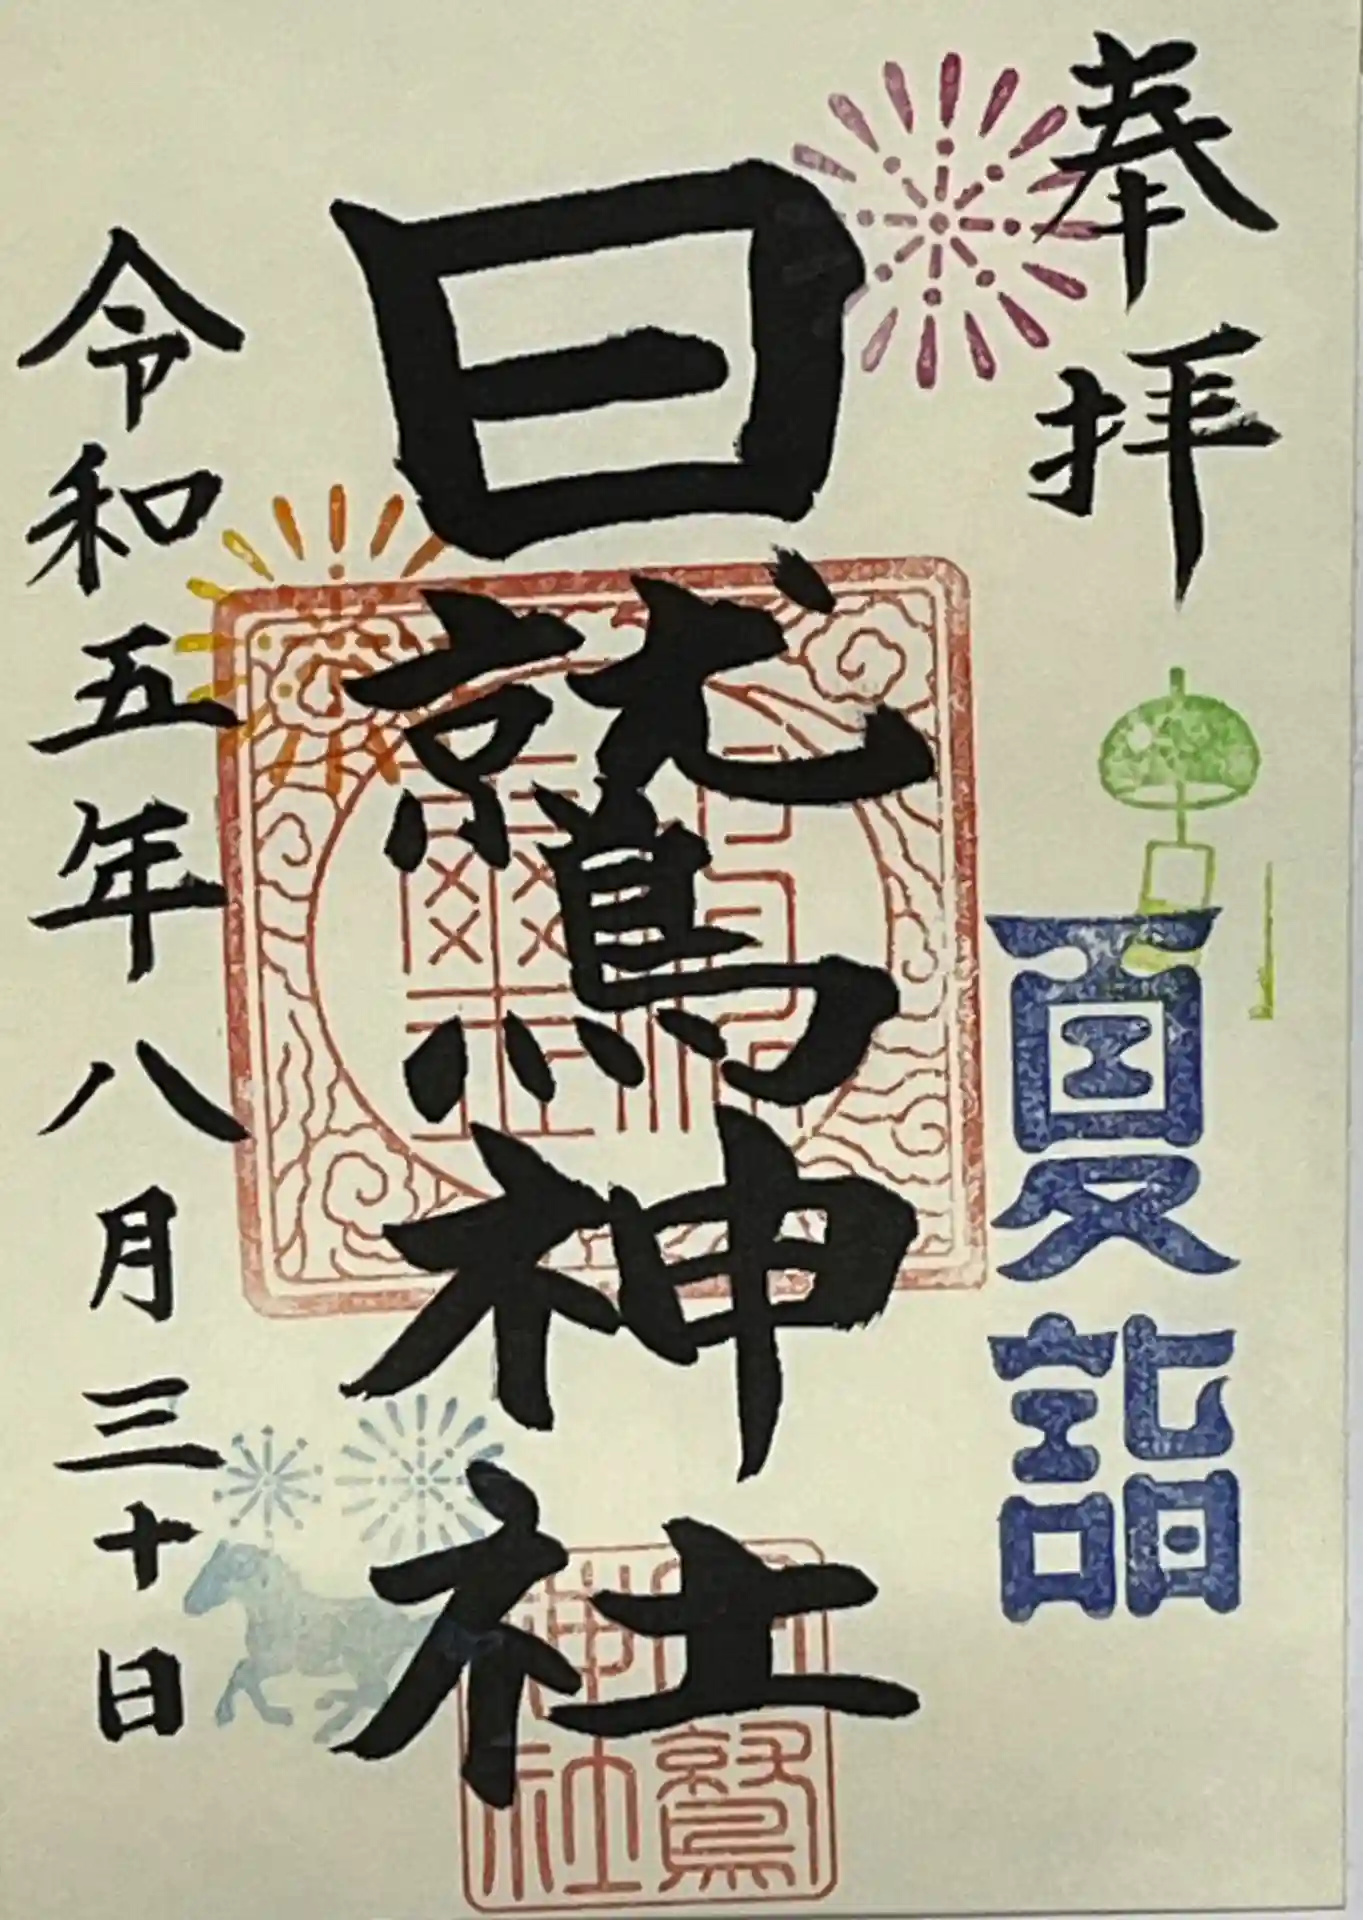 奉拝
夏詣
日鷲神社
令和五年八月三十日
日鷲神社